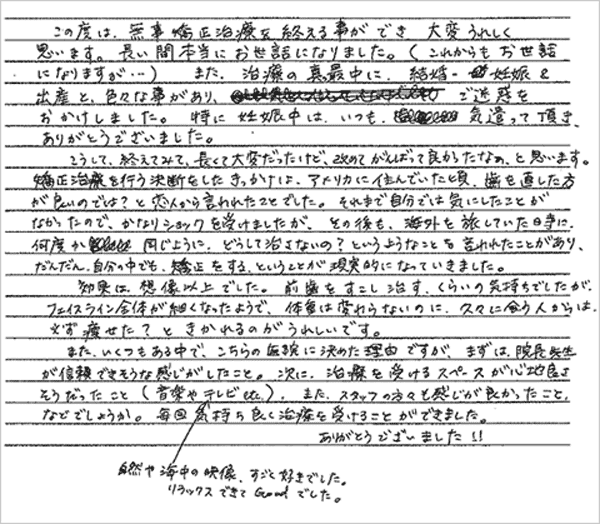 この度は、無事矯正治療を終える事ができ、大変うれしく
思います。長い間本当にお世話になりました。(これからもお世話
になりますが…) また、治療の真最中に、結婚・妊娠&
出産と、色々な事があり、ご迷惑を
おかけしました。特に妊娠中は、いつも、気遣って頂き、
ありがとうございました。
こうして、終えてみて、長くて大変だったけど、改めてがんばって良かったなぁ、と思います。
矯正治療を行う決断をしたきっかけは、アメリカに住んでいた頃、歯を直した方
が良いのでは?と恋人から言われたことでした。それまで自分では気にしたことが
なかったので、かなりショックを受けましたが、その後も、海外を旅していた時に、
何度か同じように、どうして治さないの?というようなことを言われたことがあり、
だんだん、自分の中でも、矯正をする、ということが現実的になっていきました。
効果は、想像以上でした。前歯をすこし治す、くらいの気持ちでしたが、
フェイスライン全体が細くなったようで、体重は変わらないのに、久々に会う人からは、
必ず痩せた?ときかれるのがうれしいです。
また、いくつもある中で、こちらの医院に決めた理由ですが、まずは、院長先生
が信頼できそうな感じがしたこと。次に、治療を受けるスペースが心地良さ
そうだったこと(音楽やテレビetc.)、また、スタッフの方々も感じが良かったこと、
などでしょうか。毎回気持ち良く治療を受けることができました。
ありがとうございました!!
自然や海中の映像、すごく好きでした。
リラックスできてGoodでした。